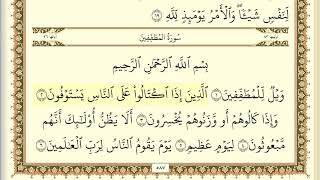 لِنَفْسٍ شَيْئًا ۖ وَالْأَمْرُ يَوْمَئِذٍ لِلَّهِ ١٩
سُورَةُ الْمُطَفِّفِينَ
بِسْمِ اللَّهِ الرَّحْمَٰنِ الرَّحِيمِ
وَيْلٌ لِلْمُطَفِّفِينَ ١ الَّذِينَ إِذَا اكْتَالُوا عَلَى النَّاسِ يَسْتَوْفُونَ ٢
وَإِذَا كَالُوهُمْ أَوْ وَزَنُوهُمْ يُخْسِرُونَ ٣ أَلَا يَظُنُّ أُولَٰئِكَ أَنَّهُمْ
مَبْعُوثُونَ ٤ لِيَوْمٍ عَظِيمٍ ٥ يَوْمَ يَقُومُ النَّاسُ لِرَبِّ الْعَالَمِينَ ٦
٥٨٧